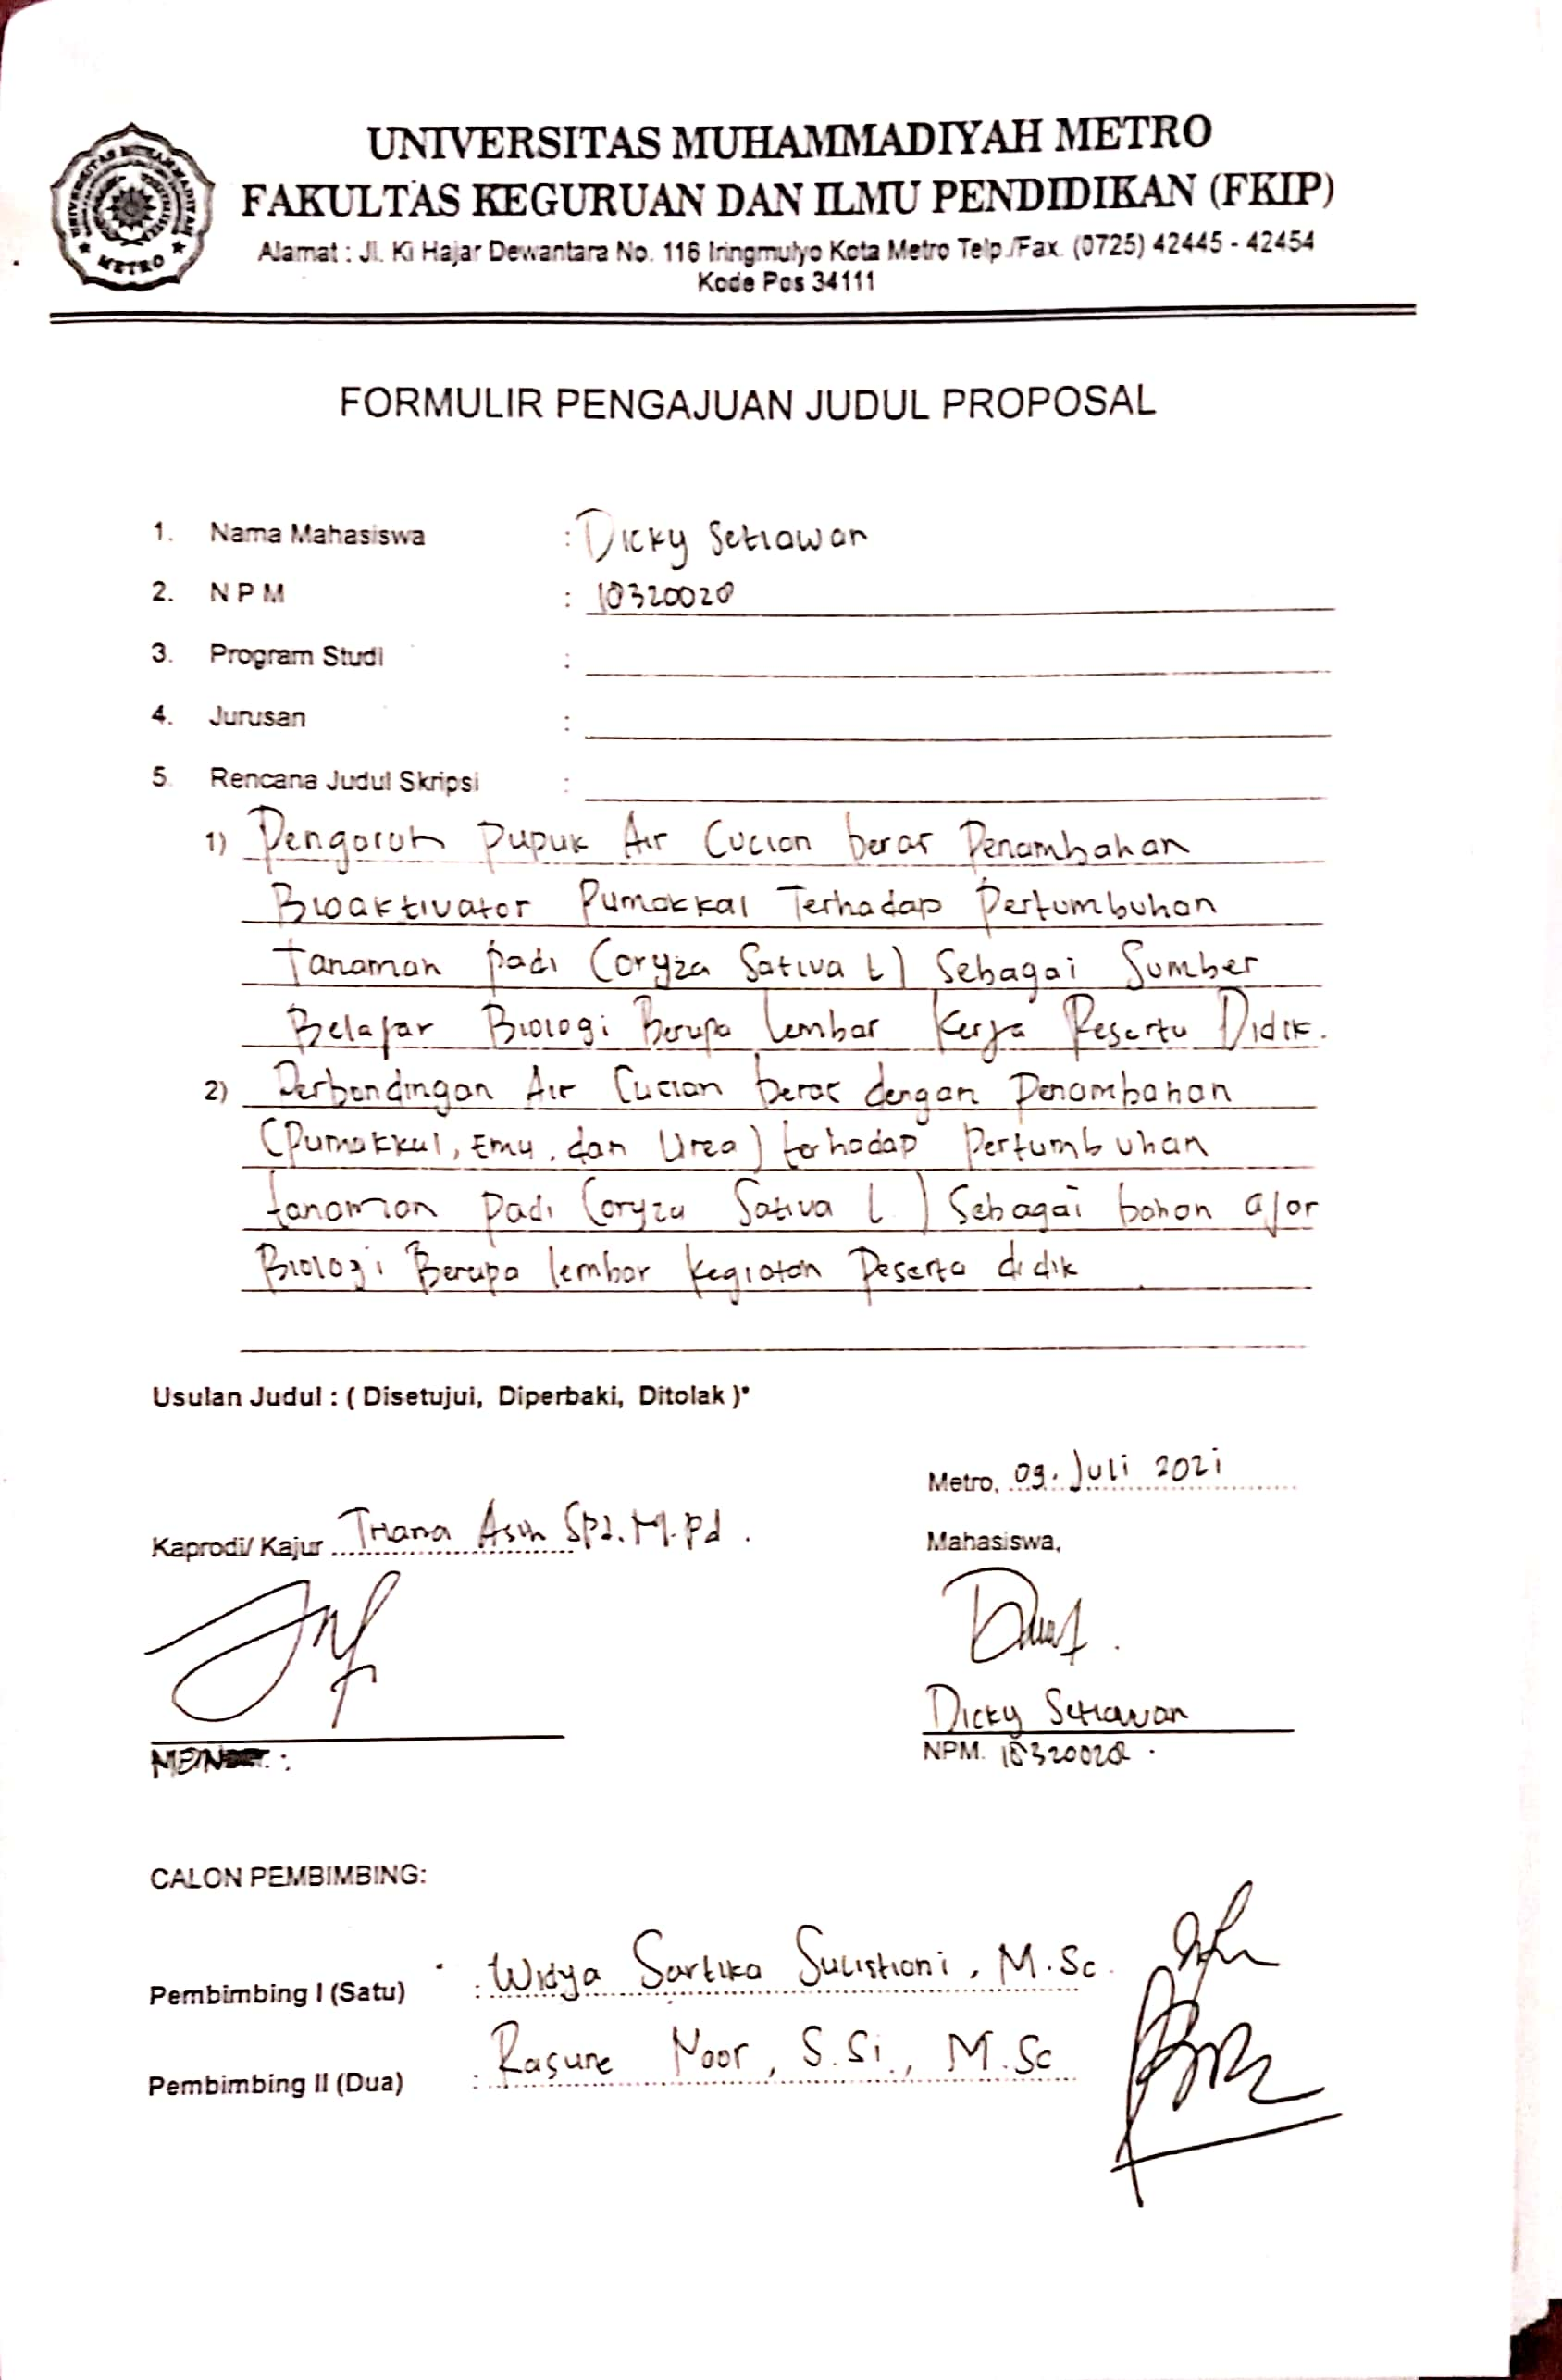 UNIVERSITAS MUHAMMADIYAH METRO
FAKULTAS KEGURUAN DAN ILMU PENDIDIKAN (FKIP)
Alamat : Jl. Ki Hajar Dewantara No. 116 Iringmulyo Kota Metro Telp./Fax. (0725) 42445 - 42454
Kode Pos 34111
UNIVERSITAS MUHAMMADIYAH
METRO
FORMULIR PENGAJUAN JUDUL PROPOSAL
1. Nama Mahasiswa : Dicky Setiawan
2. N P M : 18320028
3. Program Studi :
4. Jurusan :
5. Rencana Judul Skripsi :
1) Pengaruh Pupuk Air Cucian beras Penambahan
Bioaktivator Pumakkal Terhadap Pertumbuhan
Tanaman padi (oryza Sativa L) Sebagai Sumber
Belajar Biologi Berupa lembar Kerja Peserta Didik.
2) Perbandingan Air Cucian beras dengan Penambahan
(Pumakkal, Em4, dan Urea) terhadap Pertumbuhan
tanaman padi (oryza Sativa L ) Sebagai bahan ajar
Biologi Berupa lembar kegiatan Peserta didik
Usulan Judul : ( Disetujui, Diperbaki, Ditolak )*
Metro, 09. Juli 2021
Kaprodi/ Kajur Triana Asih SPd. M.Pd .
Mahasiswa,
Dicky Setiawan
NPM. 18320028 .
CALON PEMBIMBING:
Pembimbing I (Satu) : Widya Sartika Sulistiani, M.Sc.
Pembimbing II (Dua) : Rasuane Noor, S.Si., M.Sc